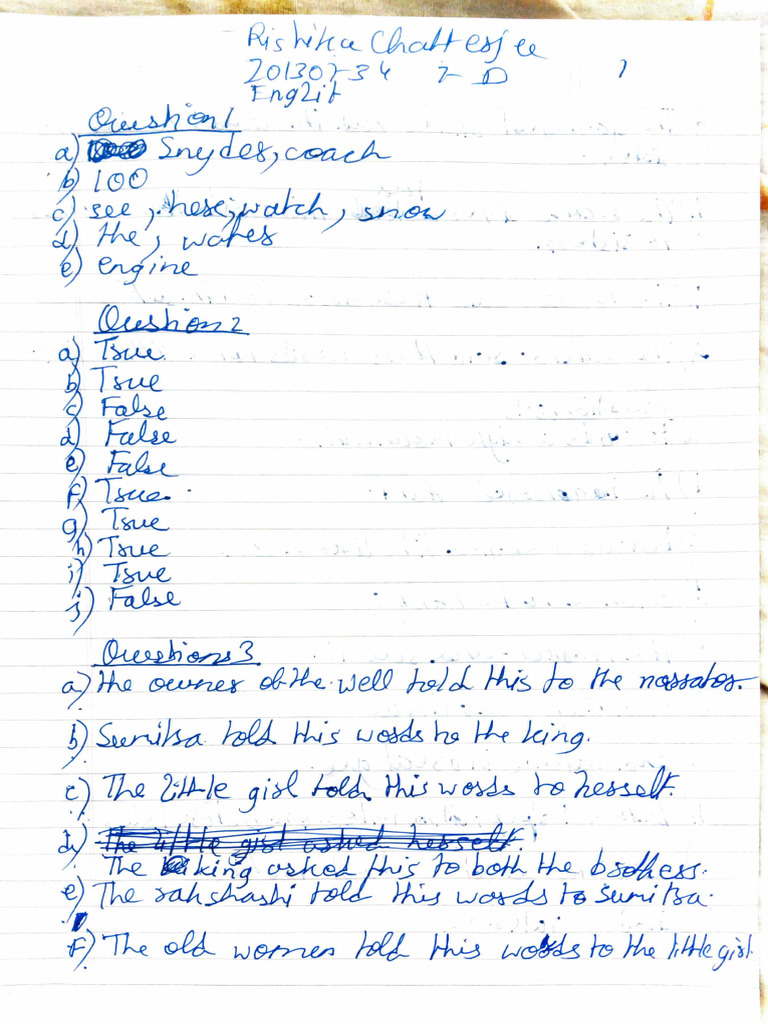 Rishika Chatterjee
201307-34 7-D
Eng2it
Question 1
a) Snyder, coach
b) 100
c) see, here, watch, snow
d) the, waves
e) engine
Question 2
a) True
b) True
c) False
d) False
e) False
f) True.
g) True
h) True
i) True
j) False
Questions 3
a) The owner of the well told this to the narrator.
b) Sumitra told this words to the king.
c) The little girl told this words to herself.
d) The king asked this to both the brothers.
e) The rakshashi told this words to Sumitra.
f) The old women told this words to the little girl.